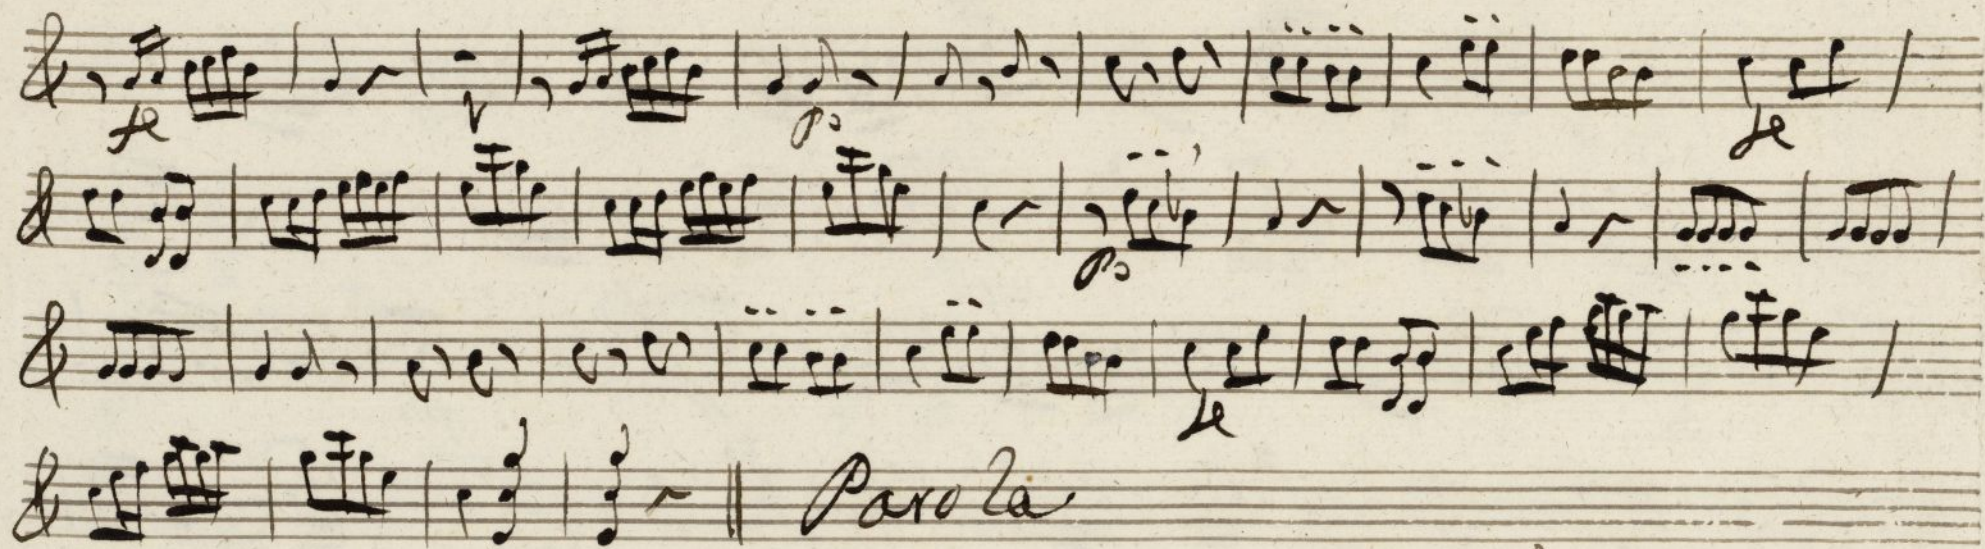 fe po fe
po
fe
Parola